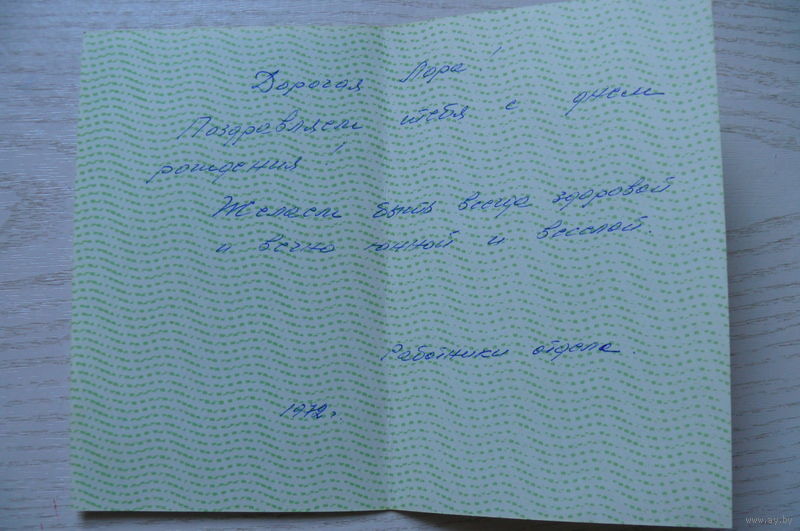 Дорогая Лора!
Поздравляем тебя с днем
рождения!
Желаем быть всегда здоровой
и вечно юнной и веселой.
Работники отдела.
1972г.
www.ay.by